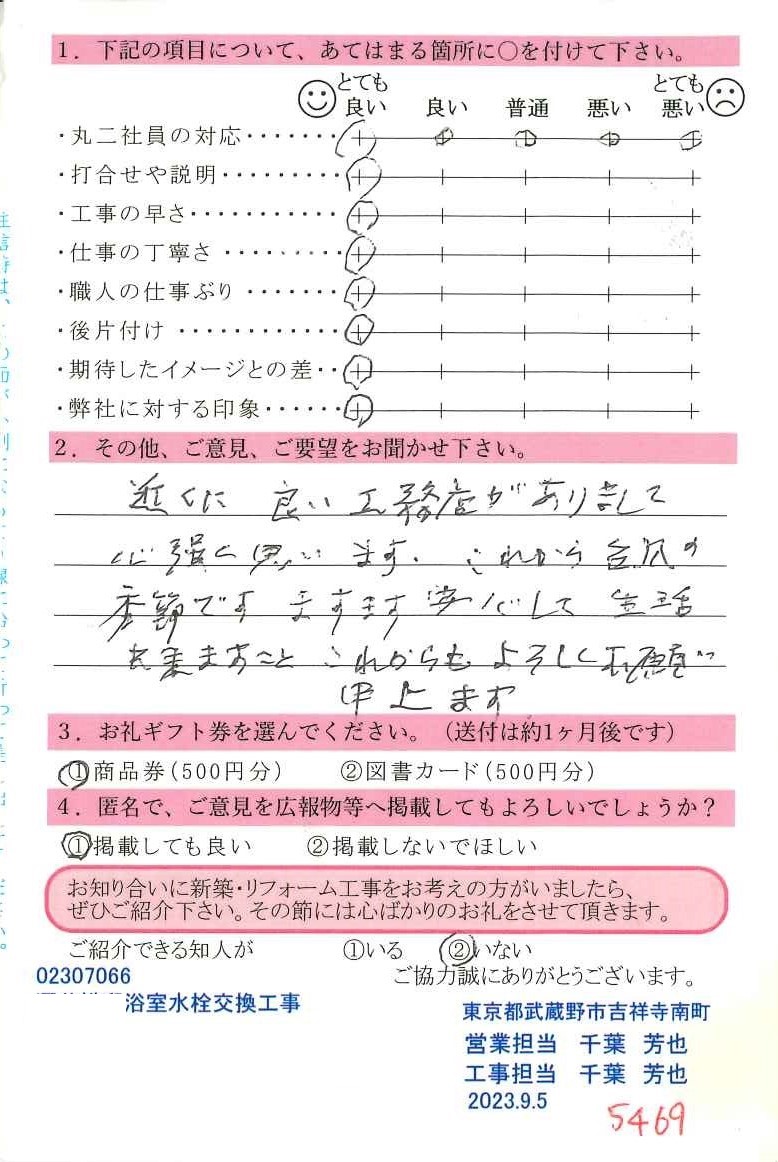 1．下記の項目について、あてはまる箇所に○を付けて下さい。
とても良い 良い 普通 悪い とても悪い
・丸二社員の対応・・・・・・・
・打合せや説明・・・・・・・・・
・工事の早さ・・・・・・・・・・・
・仕事の丁寧さ ・・・・・・・・
・職人の仕事ぶり ・・・・・・・
・後片付け ・・・・・・・・・・・・
・期待したイメージとの差・・
・弊社に対する印象・・・・・・
2．その他、ご意見、ご要望をお聞かせ下さい。
近くに 良い工務店がありまして
心強く思います. これから台風の
季節です ますます安心して 生活
出来ますこと これからもよろしくお願い
申上ます
3．お礼ギフト券を選んでください。（送付は約1ヶ月後です）
①商品券(500円分) ②図書カード(500円分)
4．匿名で、ご意見を広報物等へ掲載してもよろしいでしょうか？
①掲載しても良い ②掲載しないでほしい
お知り合いに新築・リフォーム工事をお考えの方がいましたら、
ぜひご紹介下さい。その節には心ばかりのお礼をさせて頂きます。
ご紹介できる知人が ①いる ②いない
ご協力誠にありがとうございます。
02307066
浴室水栓交換工事
東京都武蔵野市吉祥寺南町
営業担当 千葉 芳也
工事担当 千葉 芳也
2023.9.5
5469